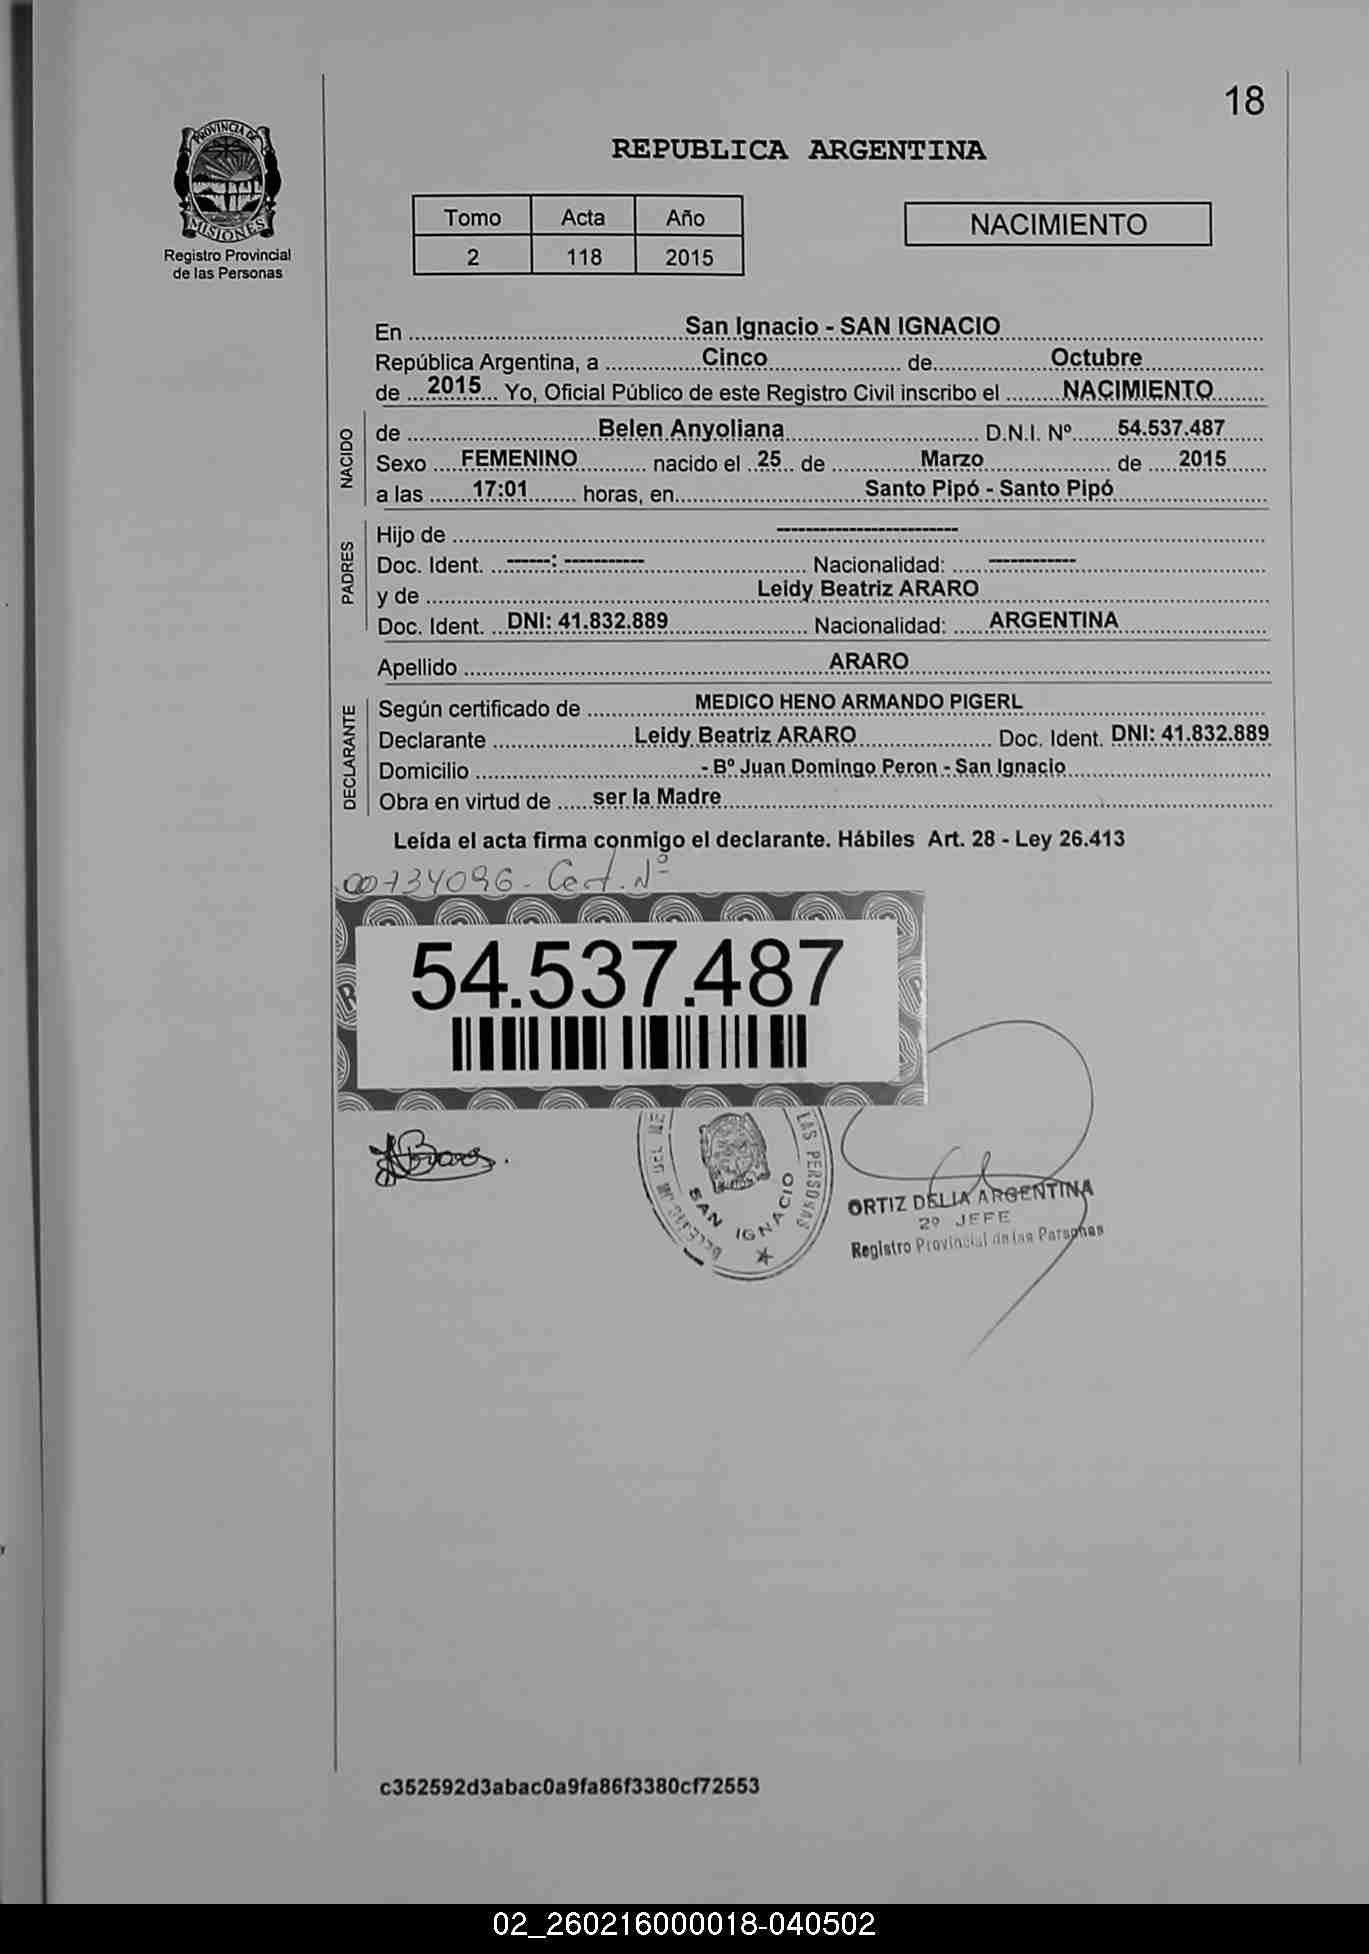 18
PROVINCIA DE
MISIONES
Registro Provincial
de las Personas
REPUBLICA ARGENTINA
Tomo Acta Año
2 118 2015
NACIMIENTO
En San Ignacio - SAN IGNACIO
República Argentina, a Cinco de Octubre
de 2015 Yo, Oficial Público de este Registro Civil inscribo el NACIMIENTO
NACIDO
de Belen Anyoliana D.N.I. Nº 54.537.487
Sexo FEMENINO nacido el 25 de Marzo de 2015
a las 17:01 horas, en Santo Pipó - Santo Pipó
PADRES
Hijo de -------------------------
Doc. Ident. ------: ----------- Nacionalidad: ------------
y de Leidy Beatriz ARARO
Doc. Ident. DNI: 41.832.889 Nacionalidad: ARGENTINA
Apellido ARARO
DECLARANTE
Según certificado de MEDICO HENO ARMANDO PIGERL
Declarante Leidy Beatriz ARARO Doc. Ident. DNI: 41.832.889
Domicilio - Bº Juan Domingo Peron - San Ignacio
Obra en virtud de ser la Madre
Leída el acta firma conmigo el declarante. Hábiles Art. 28 - Ley 26.413
00734096 - Cert. Nº
54.537.487
LAS PERSONAS
SAN IGNACIO
ORTIZ DELIA ARGENTINA
2º JEFE
Registro Provincial de las Personas
c352592d3abac0a9fa86f3380cf72553
02_260216000018-040502